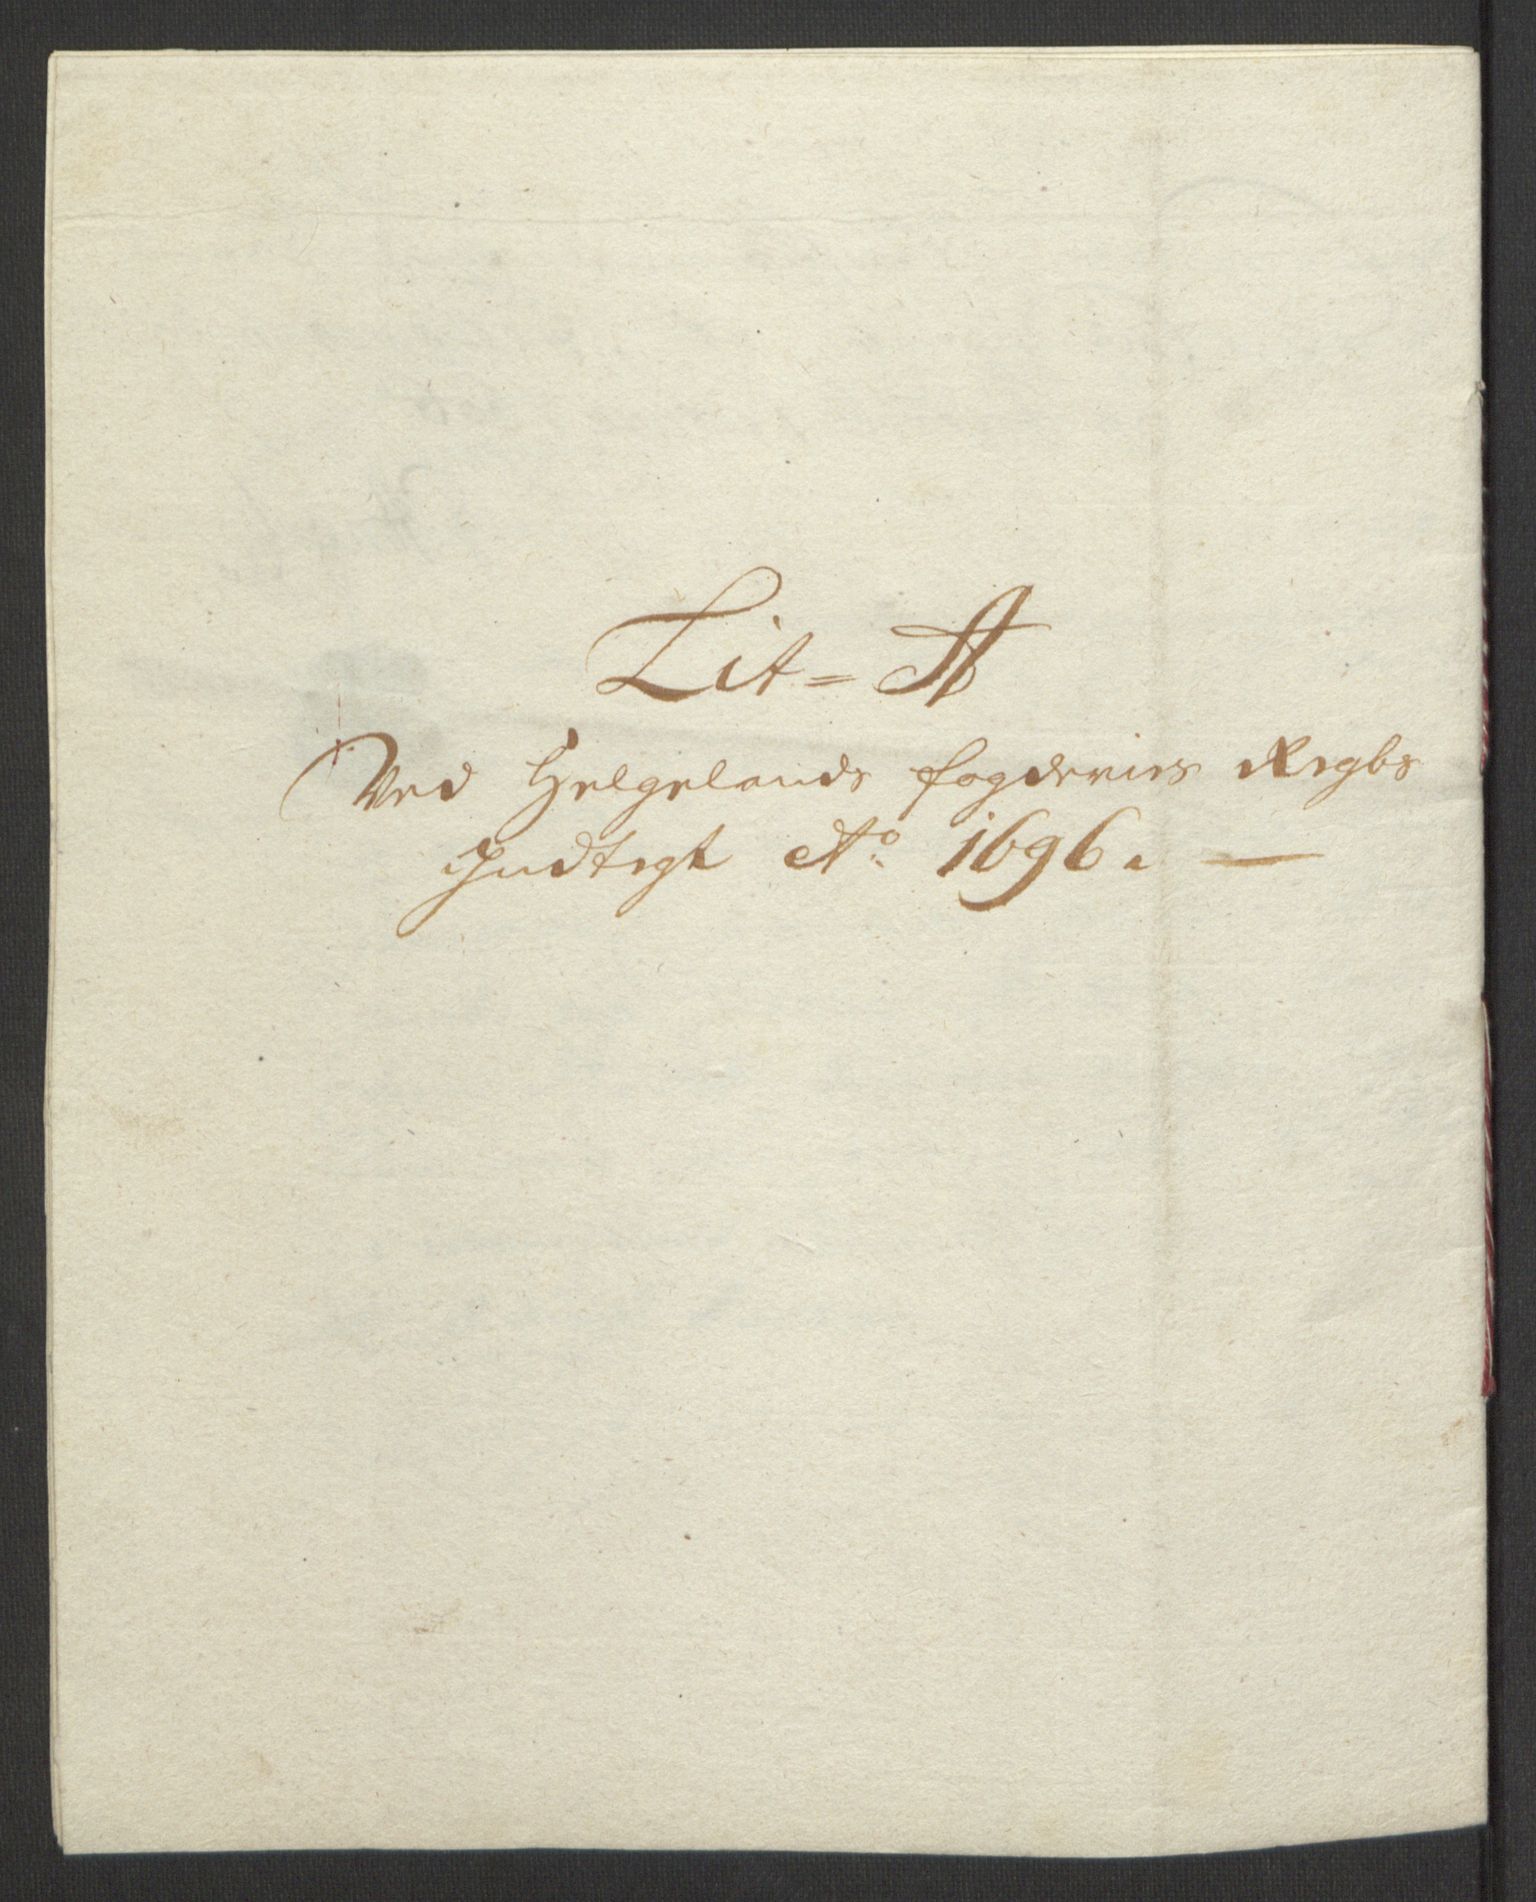 Lit = A
Ved Helgelands fogderies Regbs
Indtegt Ao. 1696. —